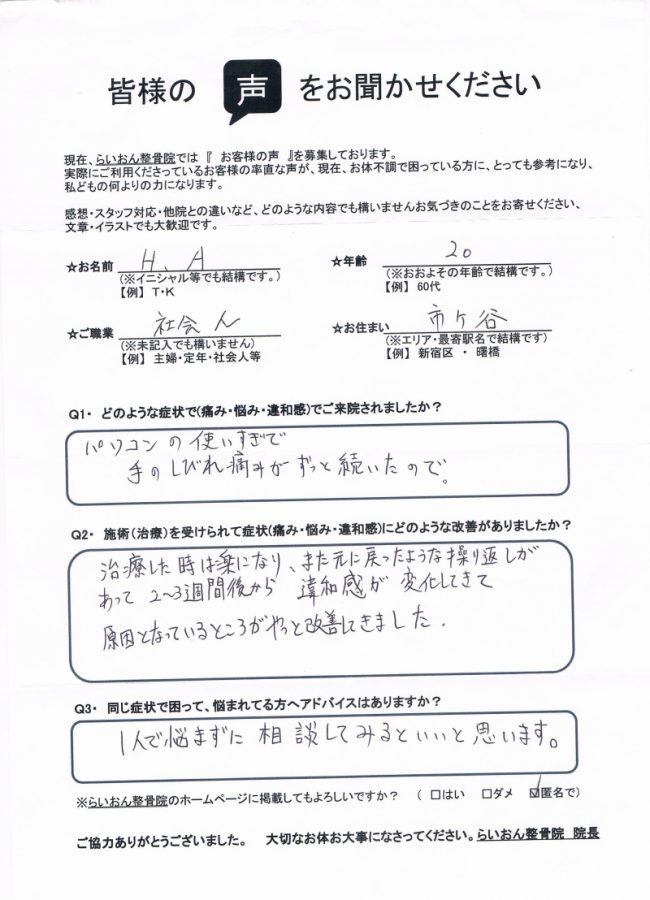 皆様の 声 をお聞かせください
現在、らいおん整骨院では『 お客様の声 』を募集しております。
実際にご利用くださっているお客様の率直な声が、現在、お体不調で困っている方に、とっても参考になり、
私どもの何よりの力になります。
感想・スタッフ対応・他院との違いなど、どのような内容でも構いませんお気づきのことをお寄せください、
文章・イラストでも大歓迎です。
☆お名前 H.A ☆年齢 20
(※イニシャル等でも結構です。) (※おおよその年齢で結構です。)
【例】 T・K 【例】 60代
☆ご職業 社会人 ☆お住まい 市ケ谷
(※未記入でも構いません) (※エリア・最寄駅名で結構です)
【例】 主婦・定年・社会人等 【例】 新宿区 ・ 曙橋
Q1・ どのような症状で(痛み・悩み・違和感)でご来院されましたか？
パソコンの使いすぎで
手のしびれ痛みがずっと続いたので。
Q2・ 施術(治療)を受けられて症状(痛み・悩み・違和感)にどのような改善がありましたか？
治療した時は楽になり、また元に戻ったような繰り返しが
あって 2〜3週間後から 違和感が 変化してきて
原因となっているところがやっと改善してきました.
Q3・ 同じ症状で困って、悩まれてる方へアドバイスはありますか？
1人で悩まずに 相談してみるといいと思います。
※らいおん整骨院のホームページに掲載してもよろしいですか？ ( □はい □ダメ ☑匿名で)
ご協力ありがとうございました。 大切なお体お大事になさってください。らいおん整骨院 院長